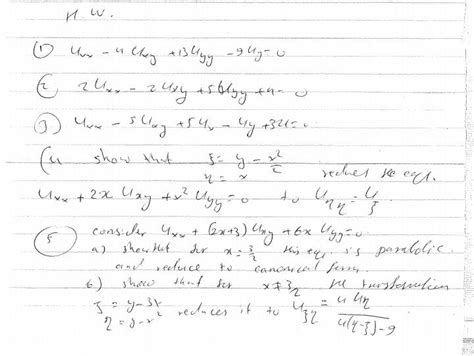 H.W.
① Uxx - 4Uxy + 13Uyy - 9Uy = 0
② 2Uxx - 2Uxy + 5Uyy + 4 = 0
③ Uxx - 5Uxy + 5Ux - Uy + 3U = 0
(4 show that ξ = y - x²/2
η = x reduces the eq.
Uxx + 2x Uxy + x² Uyy = 0 to Uηη = Uξ
⑤ consider Uxx + (2x+3) Uxy + 6x Uyy = 0
a) show that for x = 3/2 this eq. is parabolic
and reduce to canonical form.
b) show that for x ≠ 3/2 the transformation
ξ = y - 3x
η = y - x² reduces it to Uξη = 4Uη / 4(η-ξ) - 9